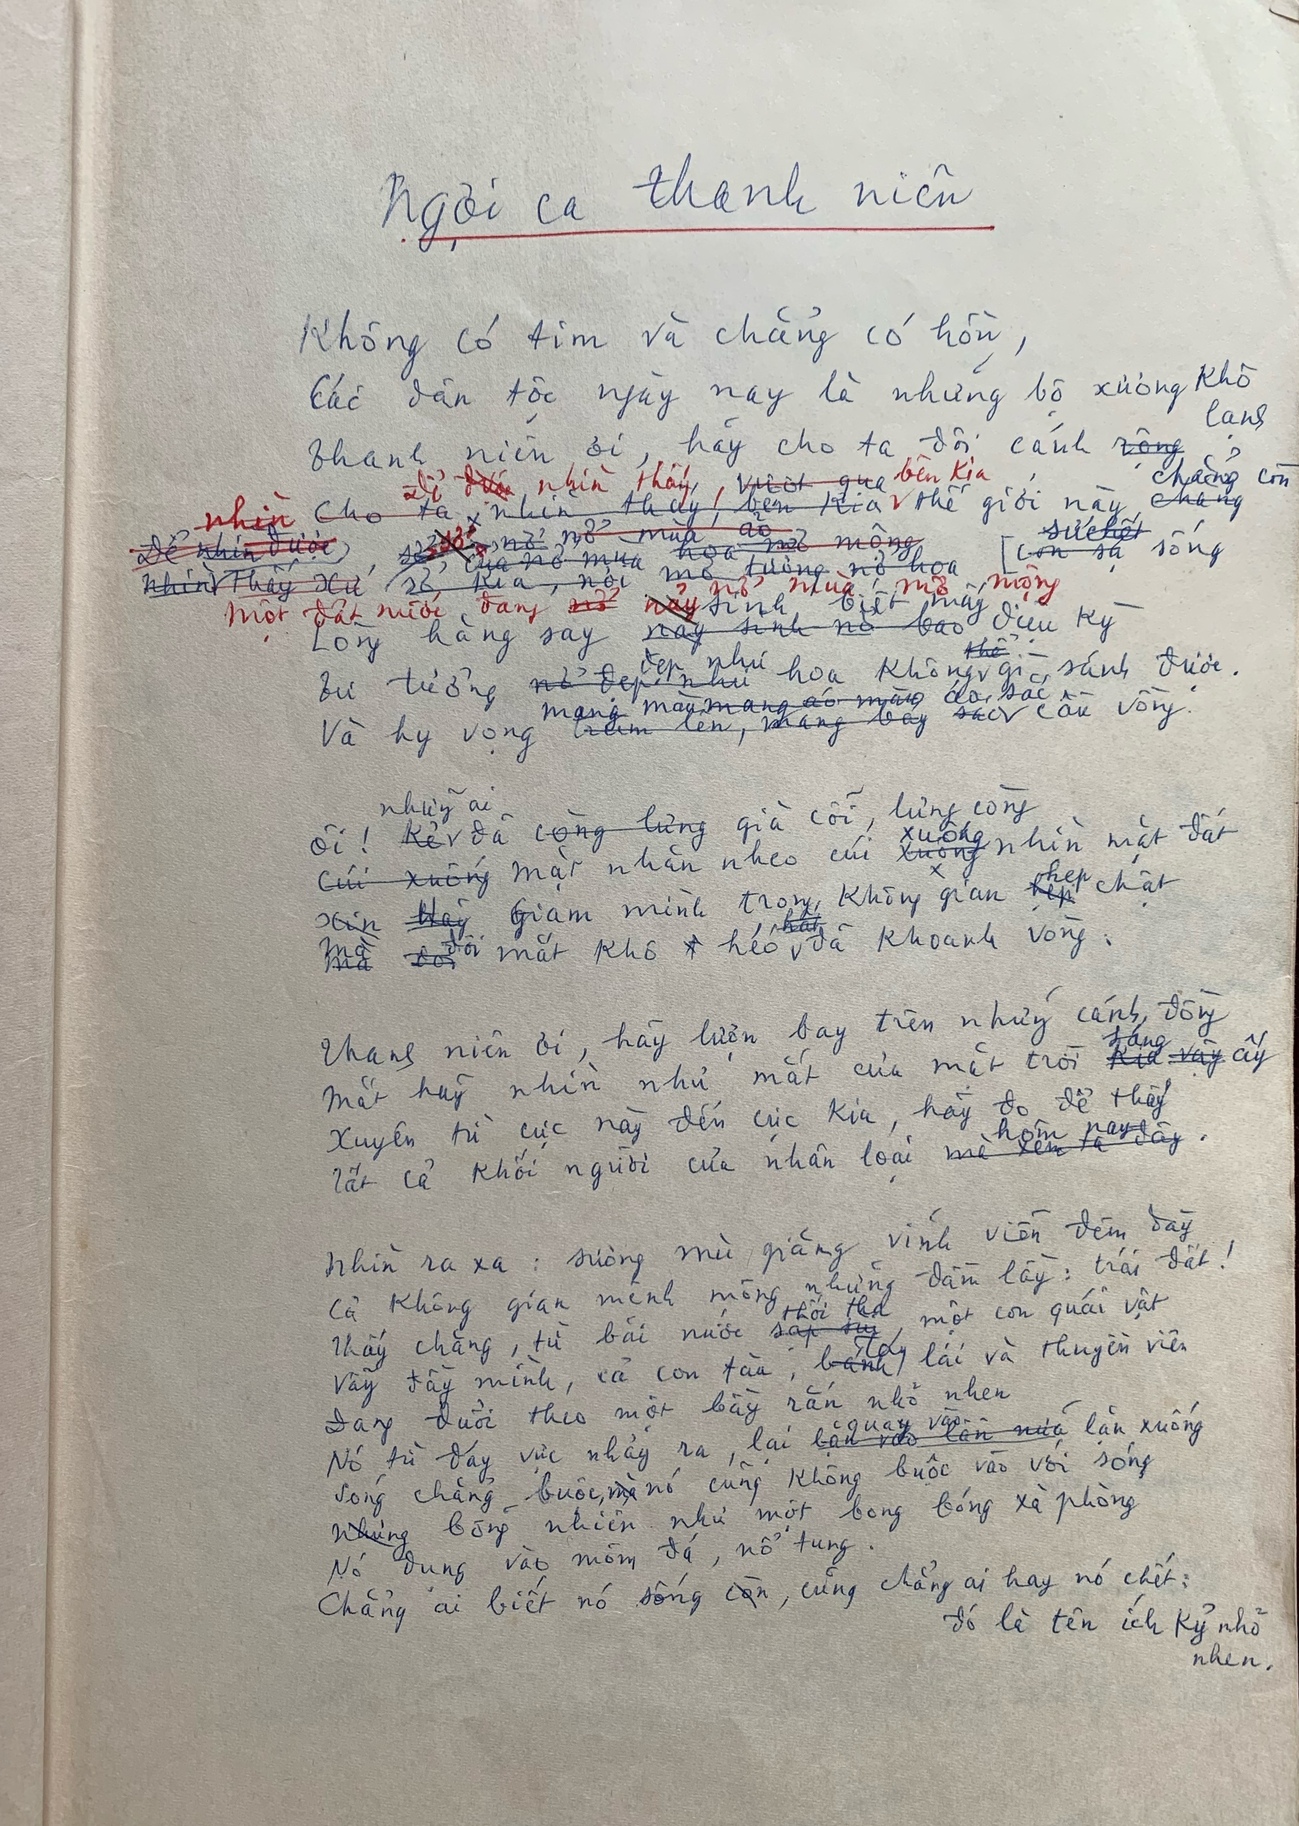 Ngợi ca thanh niên
Không có tim và chẳng có hồn,
Các dân tộc ngày nay là những bộ xương khô
Thanh niên ơi, hãy cho ta đôi cánh rộng lang
để nhìn thấy, vượt qua bên kia chẳng còn
nhìn cho ta nhìn thấy, bên kia thế giới này, chẳng
Để nhìn được, nở mùa mơ mộng sức chết
nhìn thấy xứ sở kia, nơi mơ tưởng nở hoa [còn sự sống
Một đất nước đang nở mùa mơ mộng
nảy sinh, biết mấy
Lòng hăng say nảy sinh nở bao diệu kỳ
đẹp như thể
Tư tưởng nở đẹp như hoa không gì sánh được.
mang màu mang áo màu áo, sắc
Và hy vọng trùm lên, mang bảy sắc cầu vồng.
những ai
Ôi! Kẻ đã còng lưng già cỗi, lưng còng
xuống
Cúi xuống mặt nhăn nheo cúi xuống nhìn mặt đất
hẹp
Xin Hãy Giam mình trong không gian hẹp chật
Mà đôi mắt khô héo hắt đã khoanh vòng:
Thanh niên ơi, hãy lượn bay trên những cánh đồng
sáng
Mắt hãy nhìn như mắt của mặt trời kia vậy ấy
Xuyên từ cực này đến cực kia, hãy đo để thấy
hôm nay
Tất cả khối người của nhân loại mà xem ta đây.
Nhìn ra xa: sương mù giăng vĩnh viễn đêm dày
Cả không gian mênh mông những đầm lầy: trái đất!
thối tha
Thấy chăng, từ bãi nước, một con quái vật
tay
Vẫy đầy mình, cả con tàu, bánh lái và thuyền viên
Đang đuổi theo một bầy rắn nhỏ nhen
quay vào
Nó từ đáy vực nhảy ra, lại lặn vào lần nữa lặn xuống
Sóng chẳng buộc, mà nó cũng không buộc vào với sóng
Nhưng bỗng nhiên như một bong bóng xà phòng
Nó đụng vào mỏm đá, nổ tung.
Chẳng ai biết nó sống còn, cũng chẳng ai hay nó chết:
đó là tên ích kỷ nhỏ
nhen.